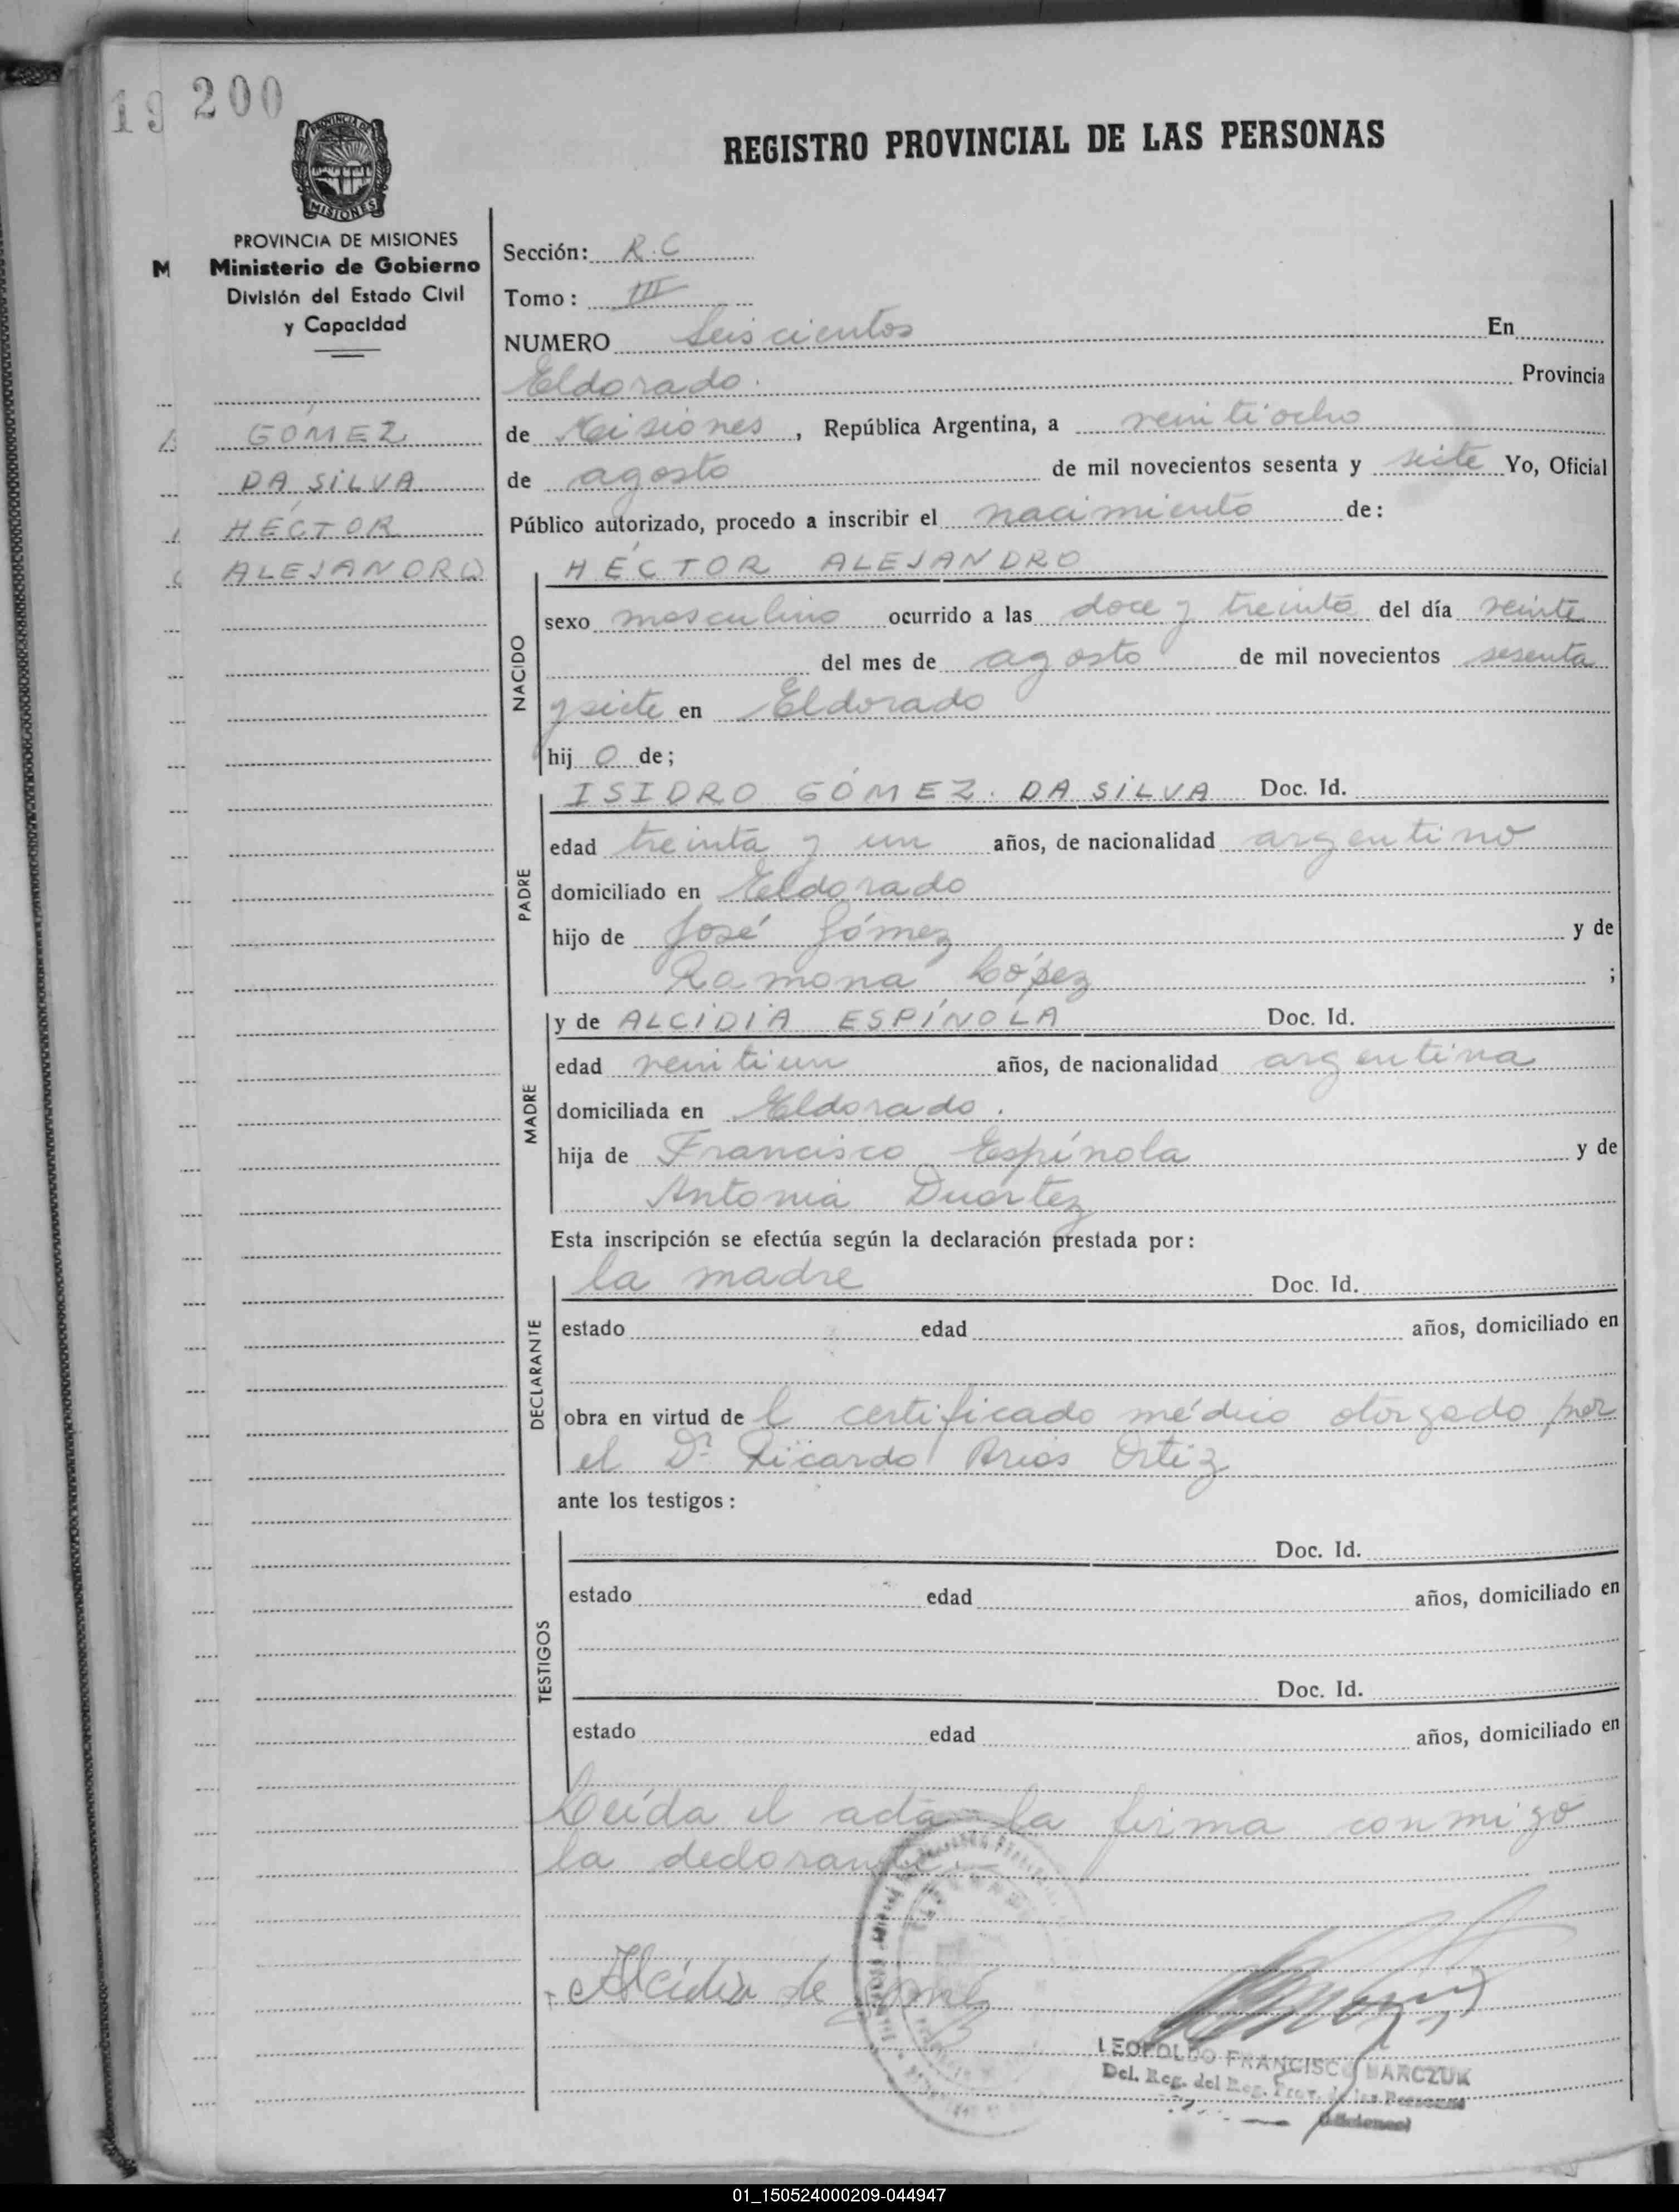 19 200
REGISTRO PROVINCIAL DE LAS PERSONAS
PROVINCIA DE MISIONES
MISIONES
PROVINCIA DE MISIONES
M Ministerio de Gobierno
División del Estado Civil
y Capacidad
GÓMEZ
DA SILVA
HÉCTOR
ALEJANDRO
Sección: R.C
Tomo: III
NUMERO Seiscientos En
Eldorado. Provincia
de Misiones, República Argentina, a veintiocho
de agosto de mil novecientos sesenta y siete Yo, Oficial
Público autorizado, procedo a inscribir el nacimiento de:
NACIDO
HÉCTOR ALEJANDRO
sexo masculino ocurrido a las doce y treinta del día veinte
del mes de agosto de mil novecientos sesenta
y siete en Eldorado
hij o de;
PADRE
ISIDRO GÓMEZ. DA SILVA Doc. Id.
edad treinta y un años, de nacionalidad argentino
domiciliado en Eldorado
hijo de José Gómez y de
Ramona López ;
MADRE
y de ALCIDIA ESPÍNOLA Doc. Id.
edad veintiun años, de nacionalidad argentina
domiciliada en Eldorado.
hija de Francisco Espínola y de
Antonia Duartez
Esta inscripción se efectúa según la declaración prestada por:
DECLARANTE
la madre Doc. Id.
estado edad años, domiciliado en
obra en virtud de l certificado médico otorgado por
el Dr Ricardo Arias Ortiz
ante los testigos:
TESTIGOS
Doc. Id.
estado edad años, domiciliado en
Doc. Id.
estado edad años, domiciliado en
Leída el acta la firma conmigo
la declarante
Alcidia de Gómez
LEOPOLDO FRANCISCO MARCZUK
Del. Reg. del Reg. Prov. de las Personas